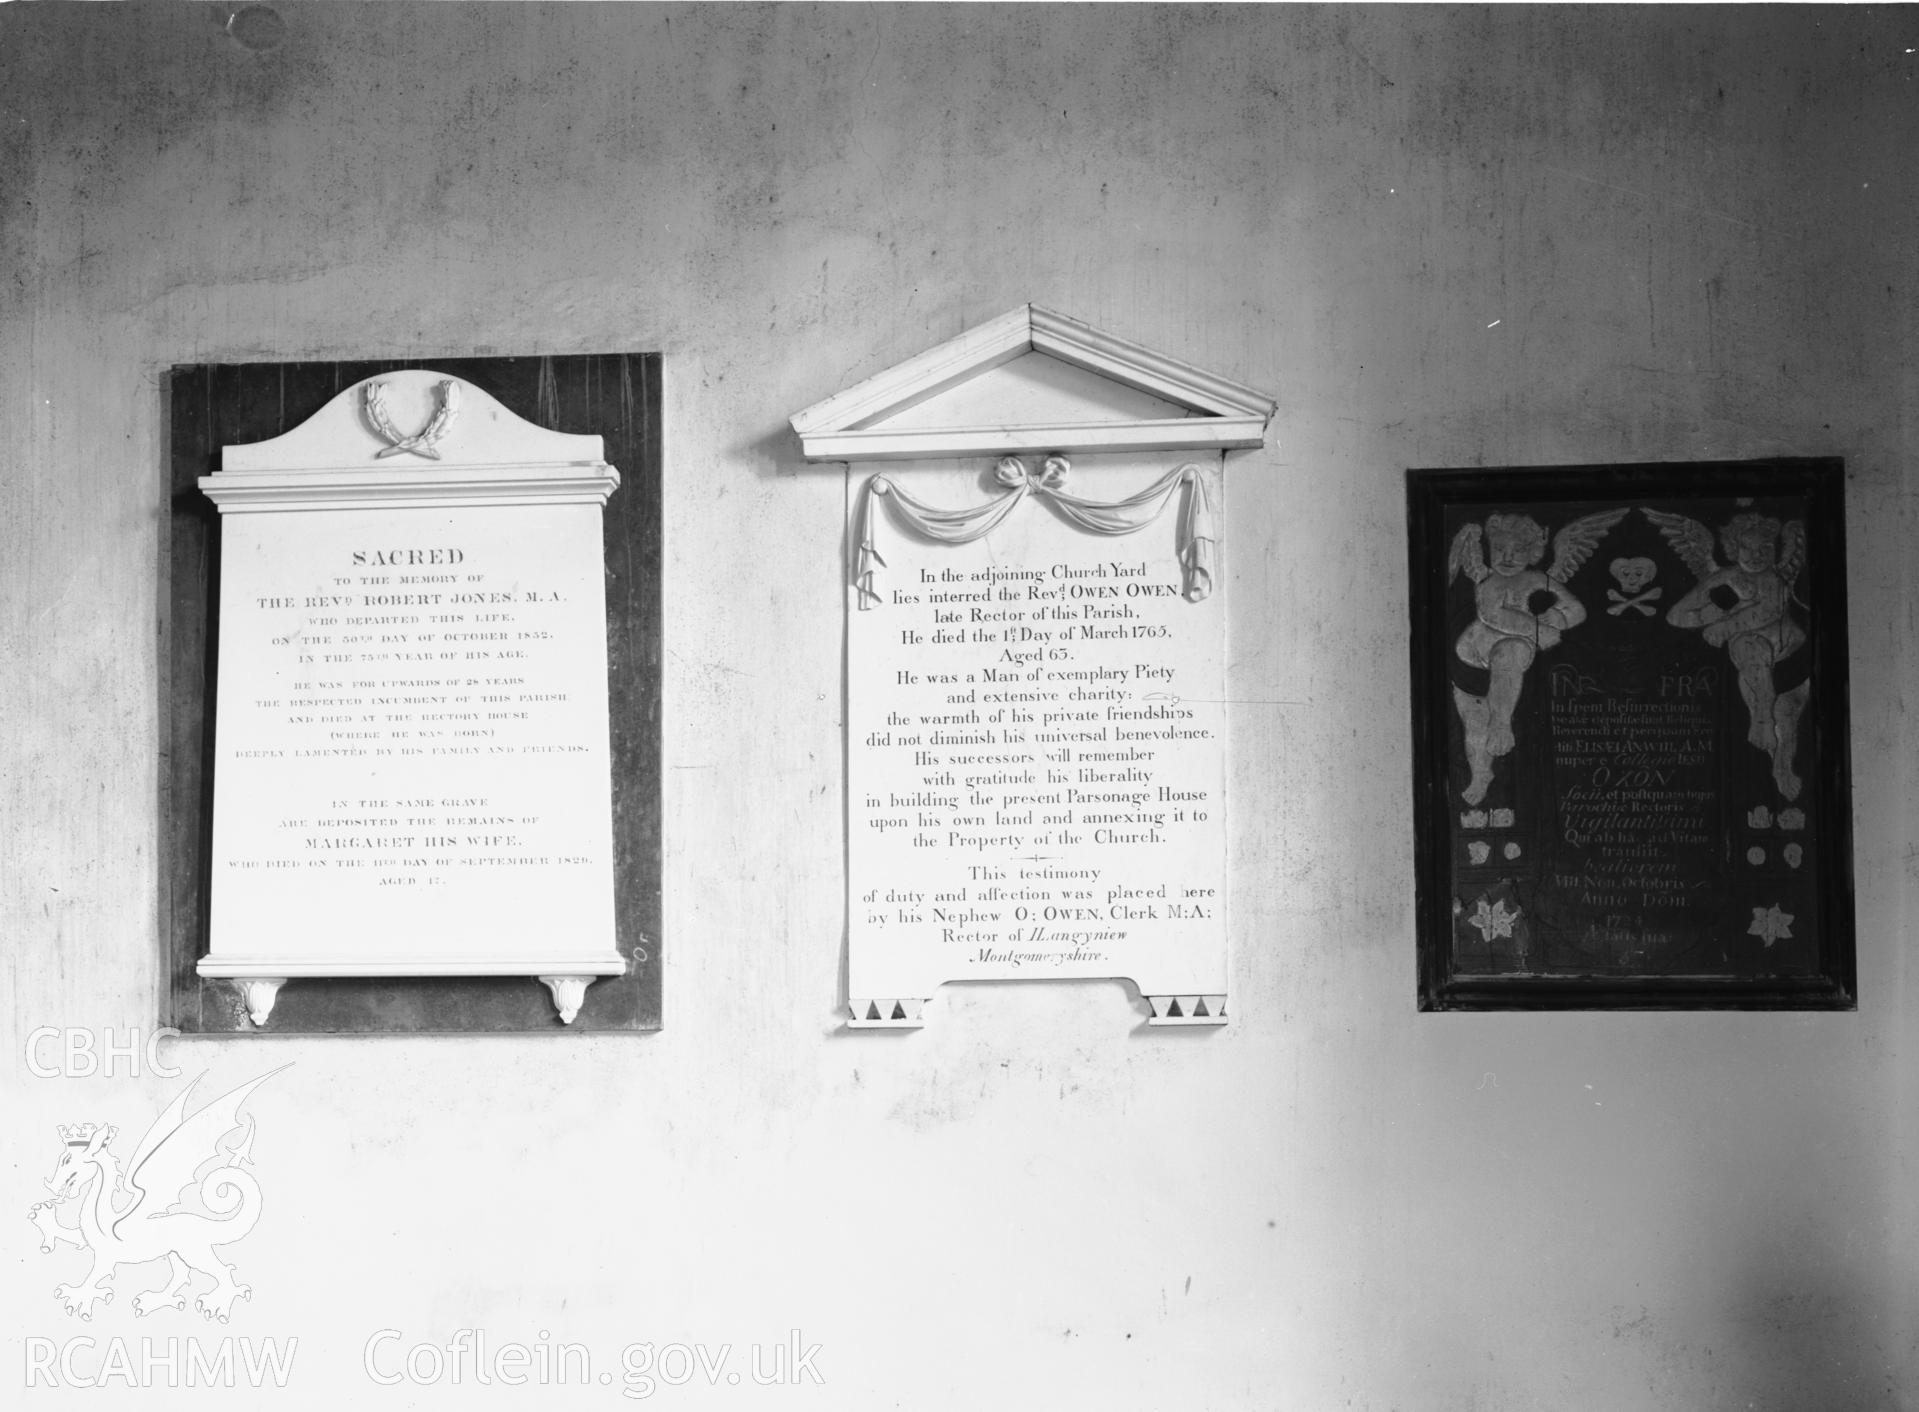 SACRED
TO THE MEMORY OF
THE REVD. ROBERT JONES, M.A.
WHO DEPARTED THIS LIFE,
ON THE 30TH DAY OF OCTOBER 1832,
IN THE 75TH YEAR OF HIS AGE.
HE WAS FOR UPWARDS OF 28 YEARS
THE RESPECTED INCUMBENT OF THIS PARISH,
AND DIED AT THE RECTORY HOUSE
(WHERE HE WAS BORN)
DEEPLY LAMENTED BY HIS FAMILY AND FRIENDS.
IN THE SAME GRAVE
ARE DEPOSITED THE REMAINS OF
MARGARET HIS WIFE,
WHO DIED ON THE DAY OF SEPTEMBER 1829,
AGED 47.
In the adjoining Church Yard
lies interred the Revd; OWEN OWEN,
late Rector of this Parish,
He died the 1st; Day of March 1765,
Aged 63.
He was a Man of exemplary Piety
and extensive charity:
the warmth of his private friendships
did not diminish his universal benevolence.
His successors will remember
with gratitude his liberality
in building the present Parsonage House
upon his own land and annexing it to
the Property of the Church.
This testimony
of duty and affection was placed here
by his Nephew O: OWEN, Clerk M:A:
Rector of Llangyniew
Montgomeryshire.
INFRA
In spem Resurrectionis
Beatæ depositæ sunt Reliquiæ
Reverendi et perquam
ELISÆI ANWIIL A.M.
nuper e Collegio IESU
OXON
Socii, et postquam hujus
Parochiæ Rectoris
Vigilantissimi
Qui ab hac ad Vitam
transiit
beatiorem
VIII. Non. Octobris
Anno Dom.
1724
Ætatis suæ
CBHC
RCAHMW
Coflein.gov.uk